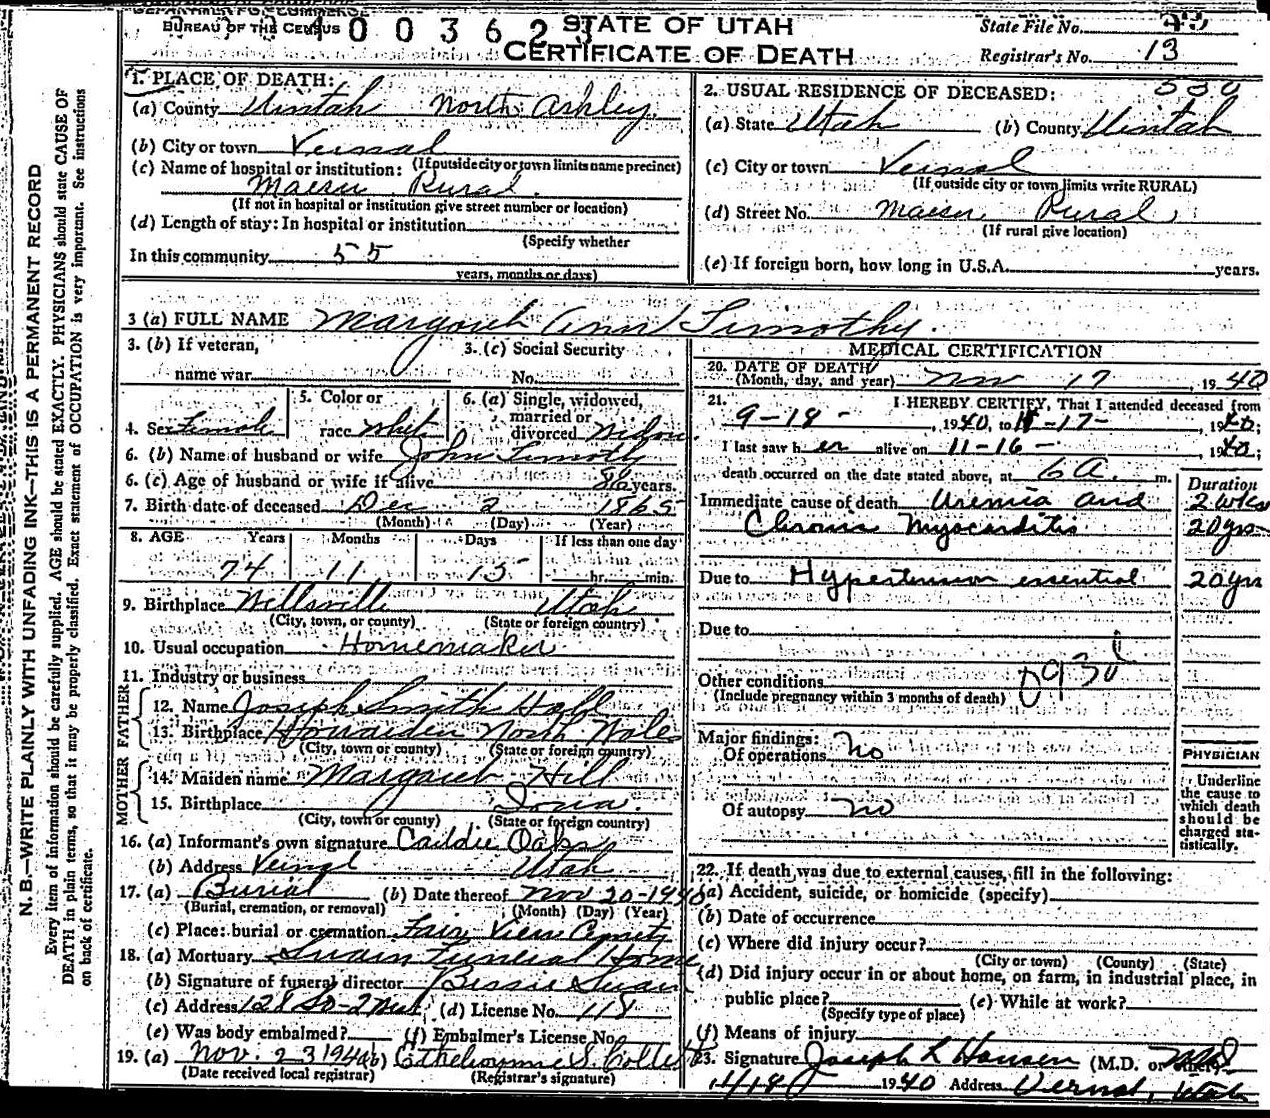 DEPARTMENT OF COMMERCE
BUREAU OF THE CENSUS
STATE OF UTAH
CERTIFICATE OF DEATH
State File No.
Registrar's No. 13
1. PLACE OF DEATH:
(a) County Uintah North Ashley
(b) City or town Vernal
(If outside city or town limits name precinct)
(c) Name of hospital or institution:
Maeser Rural
(If not in hospital or institution give street number or location)
(d) Length of stay: In hospital or institution
(Specify whether
In this community 55
years, months or days)
2. USUAL RESIDENCE OF DECEASED:
(a) State Utah (b) County Uintah
(c) City or town Vernal
(If outside city or town limits write RURAL)
(d) Street No. Maeser Rural
(If rural give location)
(e) If foreign born, how long in U.S.A. years.
3 (a) FULL NAME Margaret Ann Timothy
3. (b) If veteran, name war
3. (c) Social Security No.
4. Sex Female
5. Color or race White
6. (a) Single, widowed, married or divorced
6. (b) Name of husband or wife John Timothy
6. (c) Age of husband or wife if alive 86 years.
7. Birth date of deceased Dec 2 1865
(Month) (Day) (Year)
8. AGE Years Months Days If less than one day
74 11 15 hr. min.
9. Birthplace Wellsville Utah
(City, town, or county) (State or foreign country)
10. Usual occupation Homemaker
11. Industry or business
FATHER
12. Name Joseph Smith Hall
13. Birthplace Howarden North Wales
(City, town or county) (State or foreign country)
MOTHER
14. Maiden name Margaret Hill
15. Birthplace Iowa.
(City, town or county) (State or foreign country)
16. (a) Informant's own signature Caddie Oaks
(b) Address Vernal Utah
17. (a) Burial (b) Date thereof Nov 20-1940
(Burial, cremation, or removal) (Month) (Day) (Year)
(c) Place: burial or cremation
18. (a) Mortuary Swain Funeral Home
(b) Signature of funeral director Bessie Swain
(c) Address 128 So-2 West (d) License No. 118
(e) Was body embalmed? (f) Embalmer's License No.
19. (a) Nov. 23 1940 (b)
(Date received local registrar) (Registrar's signature)
MEDICAL CERTIFICATION
20. DATE OF DEATH
(Month, day, and year) Nov 17, 1940
21. I HEREBY CERTIFY, That I attended deceased from
9-18-, 1940, to 11-17-, 1940;
I last saw her alive on 11-16-, 1940;
death occurred on the date stated above, at 6 A. m.
Duration
Immediate cause of death Uremia and 2 wks
Chronic Myocarditis 20 yrs
Due to Hypertension essential 20 yrs
Due to
Other conditions
(Include pregnancy within 3 months of death)
Major findings:
Of operations no
Of autopsy no
PHYSICIAN
Underline the cause to which death should be charged statistically.
22. If death was due to external causes, fill in the following:
(a) Accident, suicide, or homicide (specify)
(b) Date of occurrence
(c) Where did injury occur?
(City or town) (County) (State)
(d) Did injury occur in or about home, on farm, in industrial place, in
public place? (e) While at work?
(Specify type of place)
(f) Means of injury
23. Signature Joseph L Hansen (M.D. or other)
11/18/ 1940 Address Vernal, Utah
N. B.—WRITE PLAINLY WITH UNFADING INK—THIS IS A PERMANENT RECORD
Every item of information should be carefully supplied. AGE should be stated EXACTLY. PHYSICIANS should state CAUSE OF
DEATH in plain terms, so that it may be properly classified. Exact statement of OCCUPATION is very important. See instructions
on back of certificate.